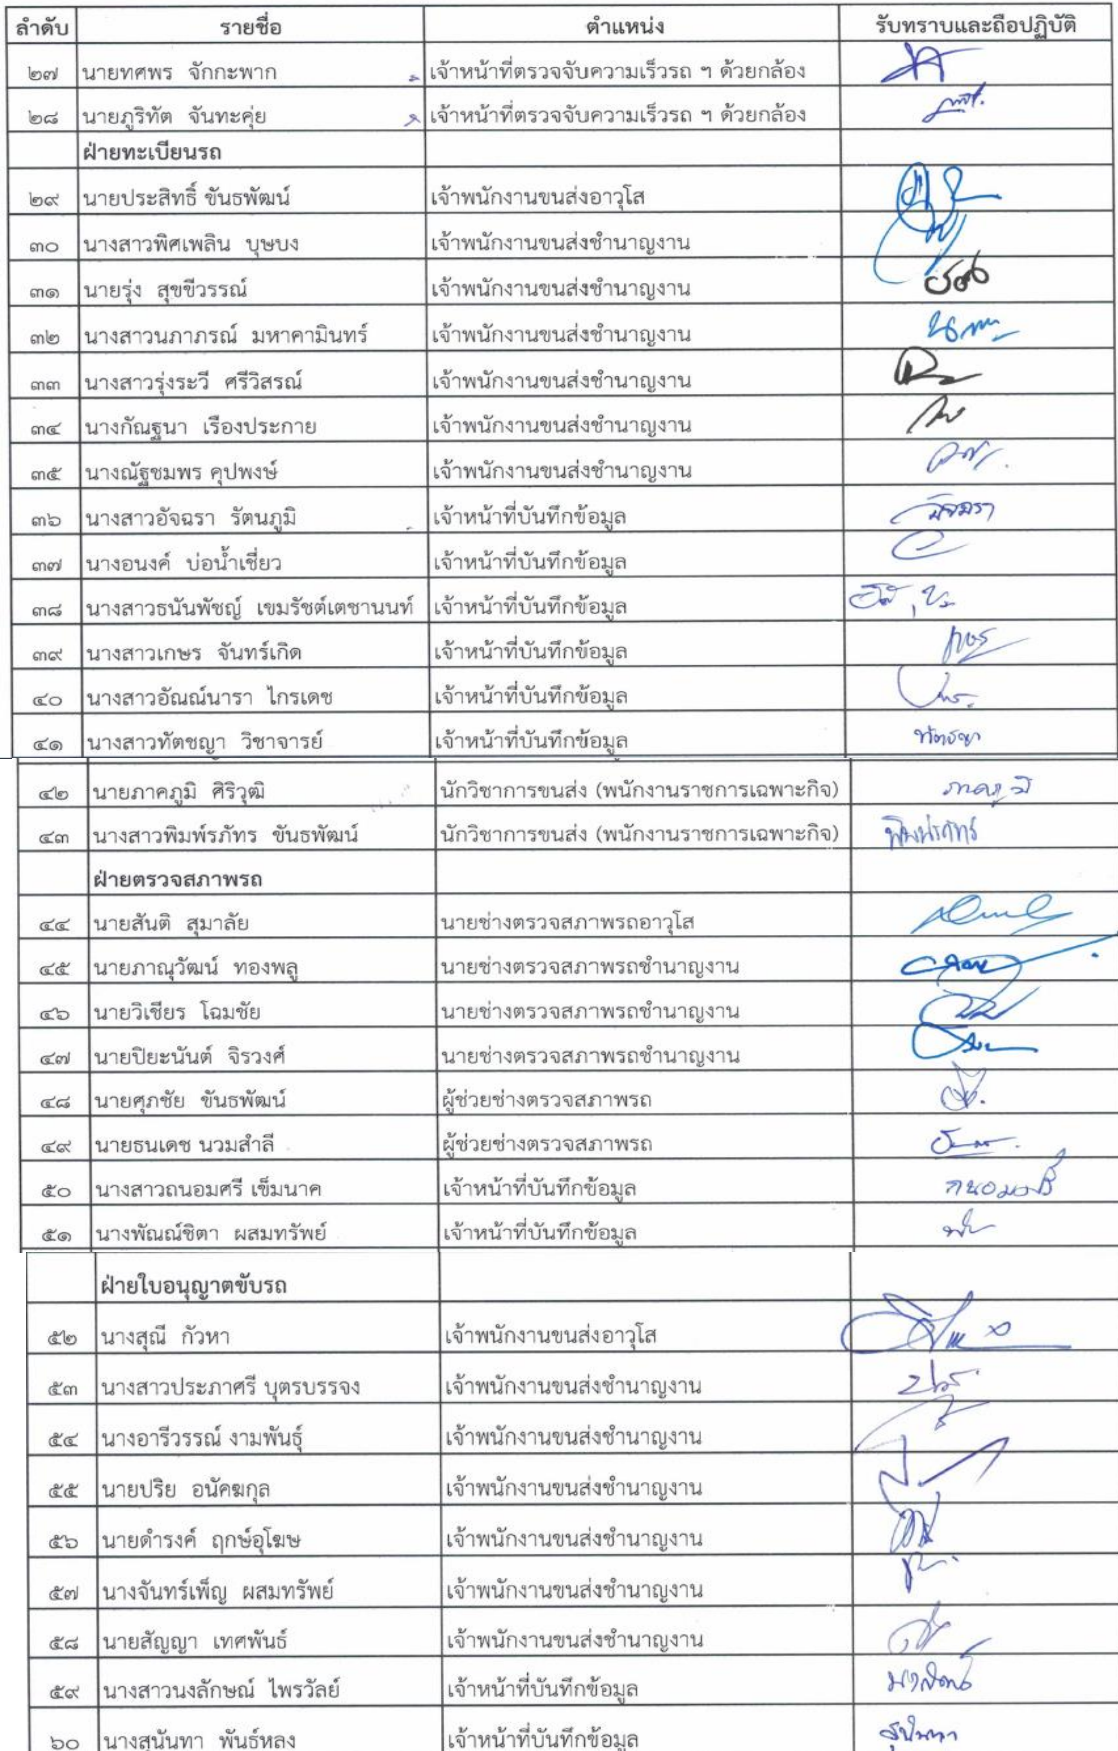 ลำดับ รายชื่อ ตำแหน่ง รับทราบและถือปฏิบัติ
๒๗ นายทศพร จักกะพาก เจ้าหน้าที่ตรวจจับความเร็วรถ ฯ ด้วยกล้อง
๒๘ นายภูริทัต จันทะคุ่ย เจ้าหน้าที่ตรวจจับความเร็วรถ ฯ ด้วยกล้อง
ฝ่ายทะเบียนรถ
๒๙ นายประสิทธิ์ ขันธพัฒน์ เจ้าพนักงานขนส่งอาวุโส
๓๐ นางสาวพิศเพลิน บุษบง เจ้าพนักงานขนส่งชำนาญงาน
๓๑ นายรุ่ง สุขขีวรรณ์ เจ้าพนักงานขนส่งชำนาญงาน
๓๒ นางสาวนภาภรณ์ มหาคามินทร์ เจ้าพนักงานขนส่งชำนาญงาน
๓๓ นางสาวรุ่งระวี ศรีวิสรณ์ เจ้าพนักงานขนส่งชำนาญงาน
๓๔ นางกัณฐนา เรืองประกาย เจ้าพนักงานขนส่งชำนาญงาน
๓๕ นางณัฐชมพร คุปพงษ์ เจ้าพนักงานขนส่งชำนาญงาน
๓๖ นางสาวอัจฉรา รัตนภูมิ เจ้าหน้าที่บันทึกข้อมูล อัจฉรา
๓๗ นางอนงค์ บ่อน้ำเชี่ยว เจ้าหน้าที่บันทึกข้อมูล
๓๘ นางสาวธนันพัชญ์ เขมรัชต์เตชานนท์ เจ้าหน้าที่บันทึกข้อมูล
๓๙ นางสาวเกษร จันทร์เกิด เจ้าหน้าที่บันทึกข้อมูล
๔๐ นางสาวอัณณ์นารา ไกรเดช เจ้าหน้าที่บันทึกข้อมูล
๔๑ นางสาวทัตชญา วิชาจารย์ เจ้าหน้าที่บันทึกข้อมูล ทัตชญา
๔๒ นายภาคภูมิ ศิริวุฒิ นักวิชาการขนส่ง (พนักงานราชการเฉพาะกิจ) ภาคภูมิ
๔๓ นางสาวพิมพ์รภัทร ขันธพัฒน์ นักวิชาการขนส่ง (พนักงานราชการเฉพาะกิจ) พิมพ์รภัทร
ฝ่ายตรวจสภาพรถ
๔๔ นายสันติ สุมาลัย นายช่างตรวจสภาพรถอาวุโส
๔๕ นายภาณุวัฒน์ ทองพลู นายช่างตรวจสภาพรถชำนาญงาน
๔๖ นายวิเชียร โฉมชัย นายช่างตรวจสภาพรถชำนาญงาน
๔๗ นายปิยะนันต์ จิรวงศ์ นายช่างตรวจสภาพรถชำนาญงาน
๔๘ นายศุภชัย ขันธพัฒน์ ผู้ช่วยช่างตรวจสภาพรถ
๔๙ นายธนเดช นวมสำลี ผู้ช่วยช่างตรวจสภาพรถ
๕๐ นางสาวถนอมศรี เข็มนาค เจ้าหน้าที่บันทึกข้อมูล ถนอมศรี
๕๑ นางพัณณ์ชิตา ผสมทรัพย์ เจ้าหน้าที่บันทึกข้อมูล
ฝ่ายใบอนุญาตขับรถ
๕๒ นางสุณี กัวหา เจ้าพนักงานขนส่งอาวุโส
๕๓ นางสาวประภาศรี บุตรบรรจง เจ้าพนักงานขนส่งชำนาญงาน
๕๔ นางอารีวรรณ์ งามพันธุ์ เจ้าพนักงานขนส่งชำนาญงาน
๕๕ นายปริย อนัคฆกุล เจ้าพนักงานขนส่งชำนาญงาน
๕๖ นายดำรงค์ ฤกษ์อุโฆษ เจ้าพนักงานขนส่งชำนาญงาน
๕๗ นางจันทร์เพ็ญ ผสมทรัพย์ เจ้าพนักงานขนส่งชำนาญงาน
๕๘ นายสัญญา เทศพันธ์ เจ้าพนักงานขนส่งชำนาญงาน
๕๙ นางสาวนงลักษณ์ ไพรวัลย์ เจ้าหน้าที่บันทึกข้อมูล
๖๐ นางสุนันทา พันธ์หลง เจ้าหน้าที่บันทึกข้อมูล สุนันทา